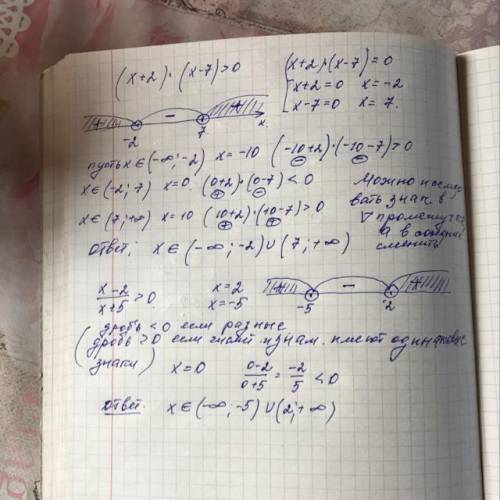 (x+2)·(x-7)>0
(x+2)·(x-7)=0
x+2=0 x=-2
x-7=0 x=7.
+ − +
-2 7 x
пусть x∈(-∞;-2) x=-10 (-10+2)·(-10-7)>0
− −
x∈(-2;7) x=0 (0+2)·(0-7)<0
+ −
x∈(7;+∞) x=10 (10+2)·(10-7)>0
+ +
Можно
вать знак в
∇
а в
сменить
Ответ; x∈(-∞;-2)∪(7;+∞)
x-2/x+5>0 x=2
x=-5
+ − +
-5 2
(дробь <0 если разные
дробь >0 если числит. и знам. имеют одинаковые
знаки) x=0 0-2/0+5=-2/5<0
Ответ. x∈(-∞;-5)∪(2;+∞)